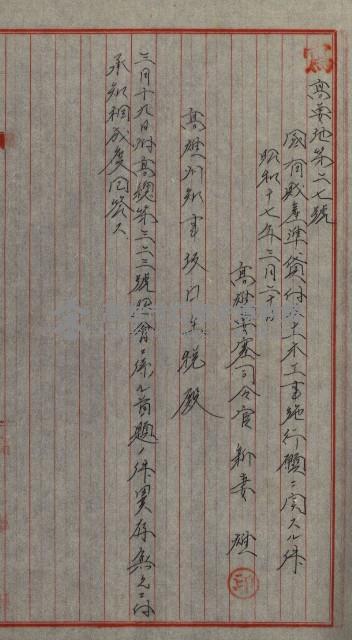 寫
高要地第六七號
國有財產準貸付土木工事施行願ニ関スル件
昭和十七年三月二十日
高雄要塞司令官 新妻 雄
印
高雄州知事坂口主税殿
三月十九日附高總第三二三號照會ニ係ル首題ノ件異存無之ニ付
承知相成度回答ス